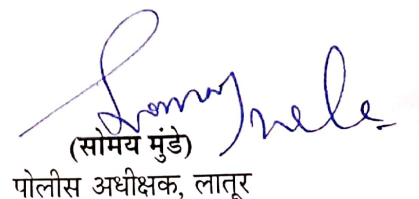 (सोमय मुंडे)
पोलीस अधीक्षक, लातूर